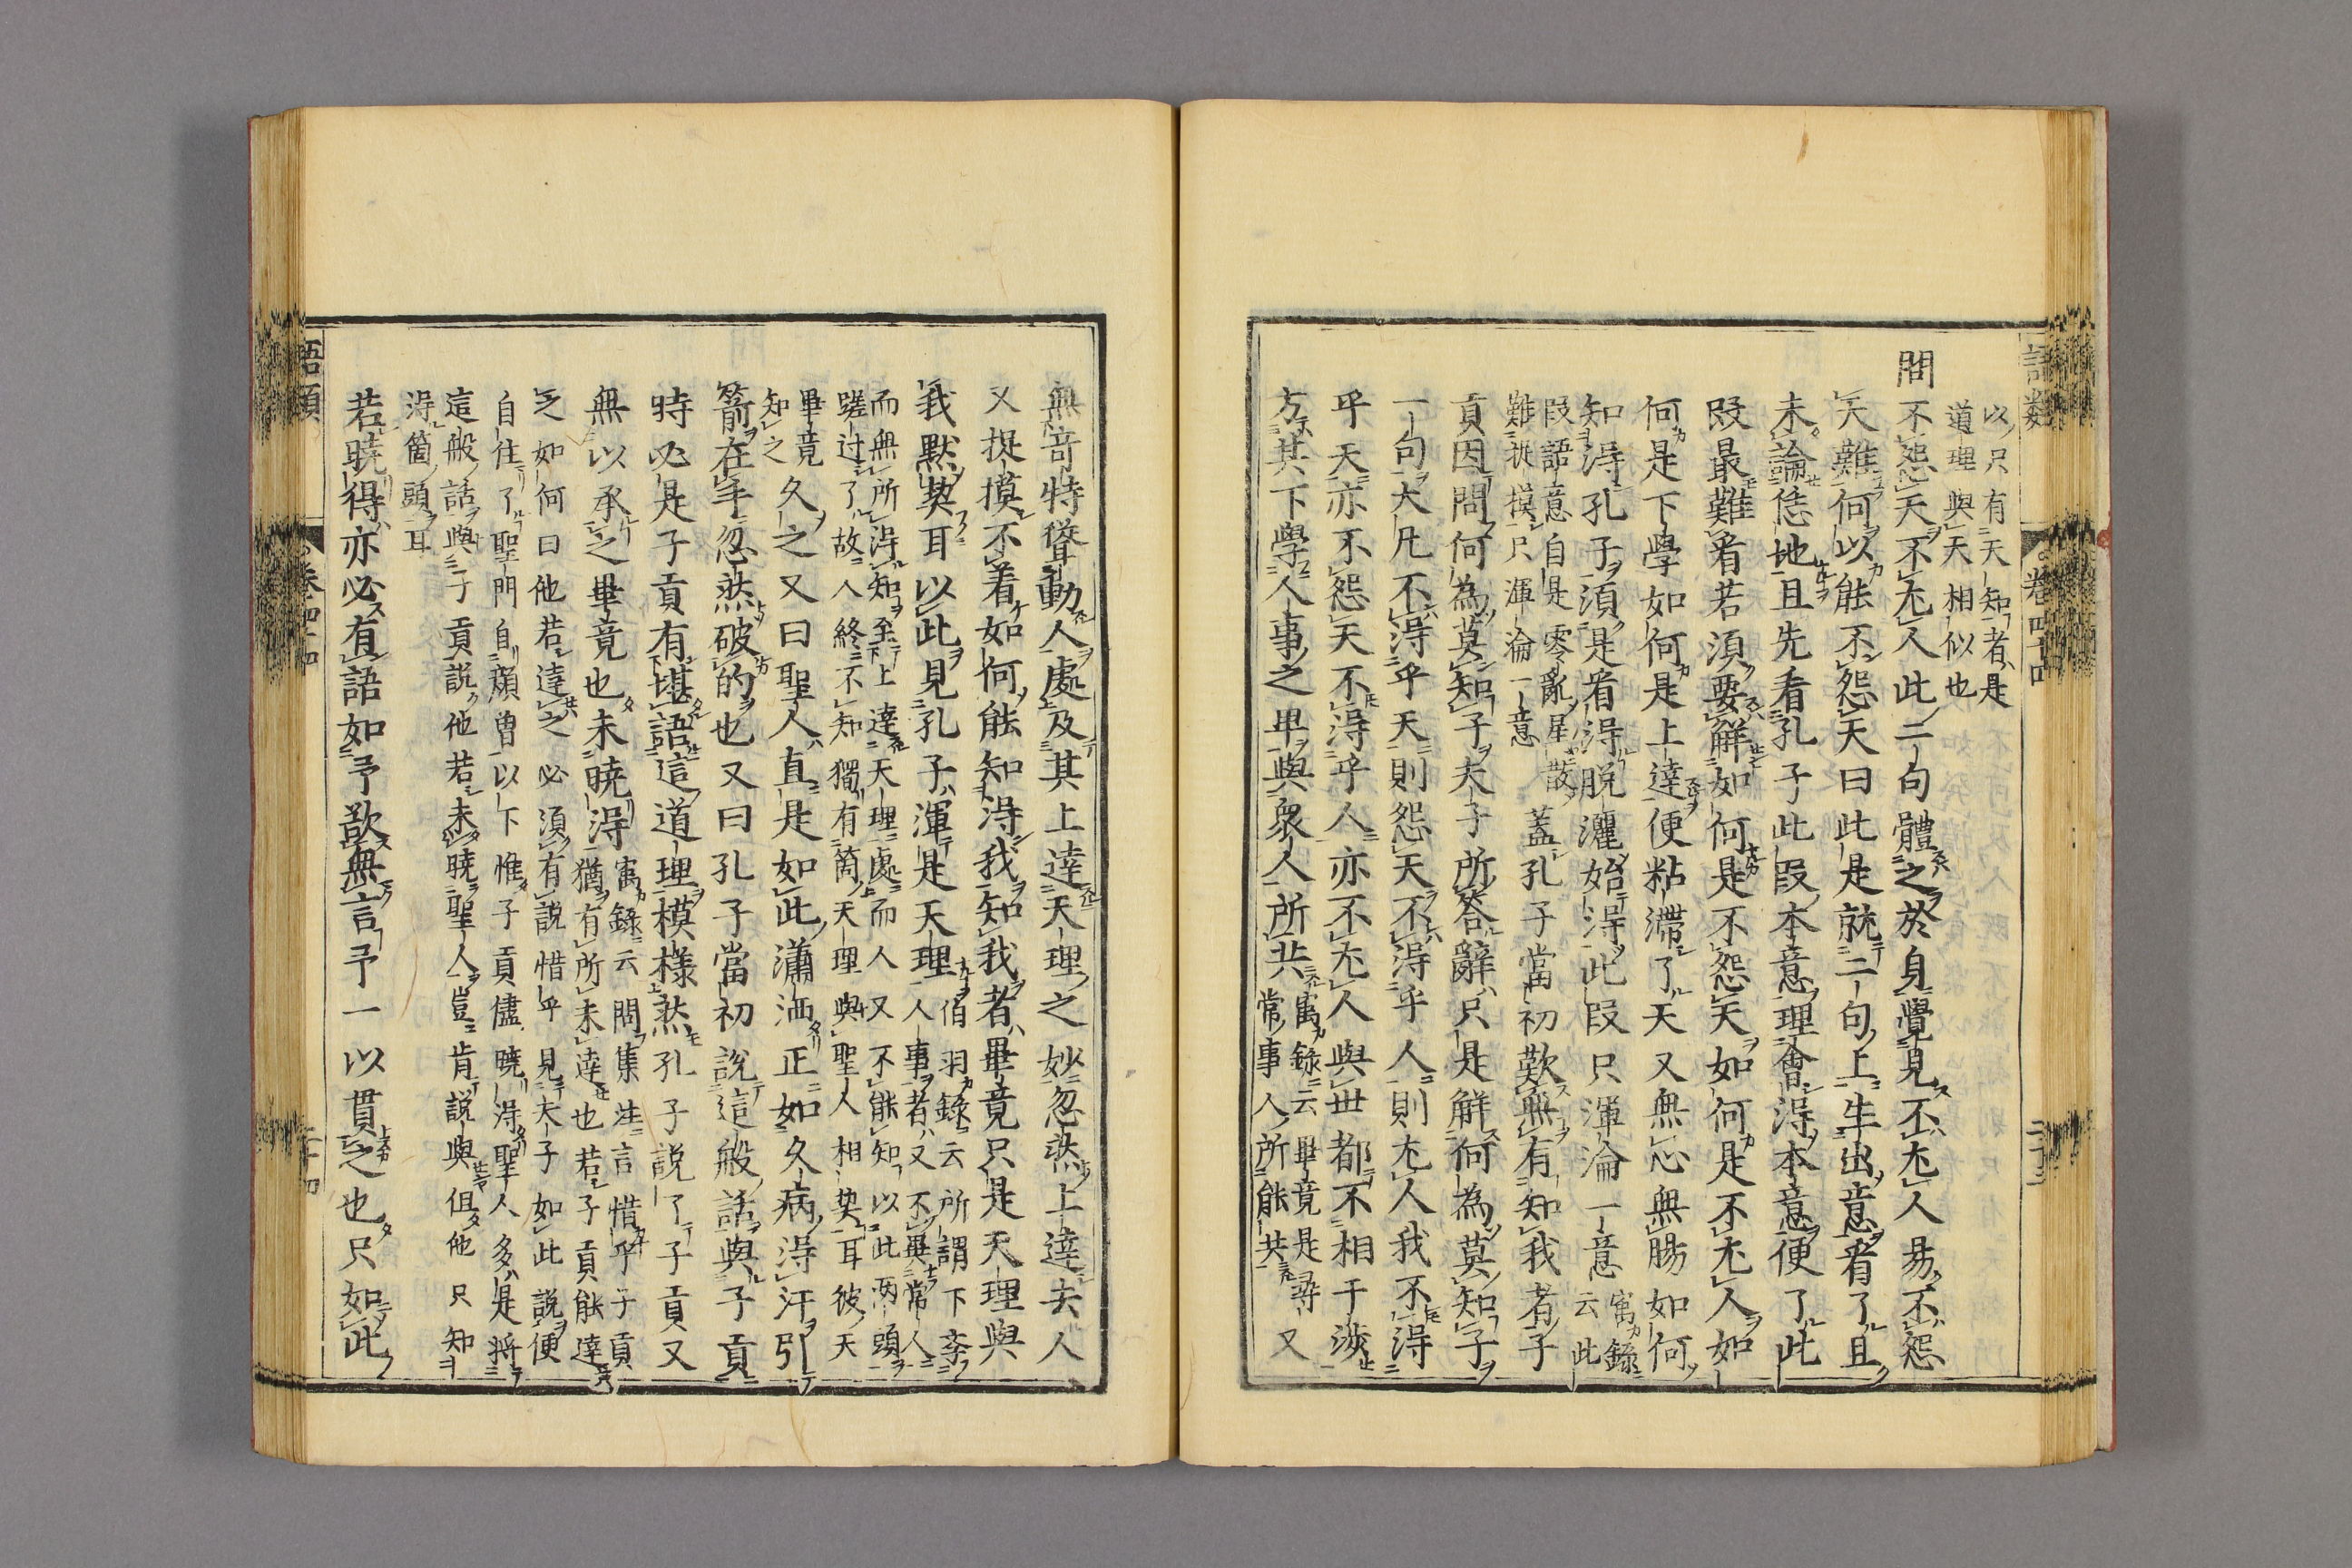 語類 卷四十四
以只有天知者是
道理與天相似也
問不怨天不尤人此二句體之於身覺見不尤人易不怨
天難何以能不怨天曰此是就二句上生出意看了且
未論恁地且先看孔子此段本意理會得本意便了此
段最難看若須要解如何是不怨天如何是不尤人如
何是下學如何是上達便粘滯了天又無心無腸如何
知得孔子須是看得脫灑始得此段只渾淪一意㝢錄云此
段語意自是零亂星散
難捉摸只渾淪一意蓋孔子當初歎無有知我者子
貢因問何為莫知子夫子所答辭只是解何為莫知子
一句大凡不得乎天則怨天不得乎人則尤人我不得
乎天亦不怨天不得乎人亦不尤人與世都不相干涉
方其下學人事之卑與衆人所共㝢錄云畢竟是尋
常事人所能共又
無奇特聳動人處及其上達天理之妙忽然上達去人
又捉摸不着如何能知得我知我者畢竟只是天理與
我默契耳以此見孔子渾是天理伯羽錄云所謂下斈
人事者又不異常人
而無所得知至上達天理處而人又不能知以此两頭
蹉过了故人終不知獨有箇天理與聖人相契耳彼天
畢竟
知之久之又曰聖人直是如此瀟洒正如久病得汗引
箭在手忽然破的也又曰孔子當初說這般話與子貢
時必是子貢有堪語這道理模樣然孔子說了子貢又
無以承之畢竟也未曉得㝢錄云問集注言惜乎子貢
猶有所未達也若子貢能達
之如何曰他若達之必須有說惜乎見夫子如此說便
自住了聖門自顏曾以下惟子貢儘曉得聖人多是將
這般話與子貢說他若未曉聖人豈肯說與但他只知
得箇頭耳
若曉得亦必有語如予欲無言予一以貫之也只如此
語類 卷四十四